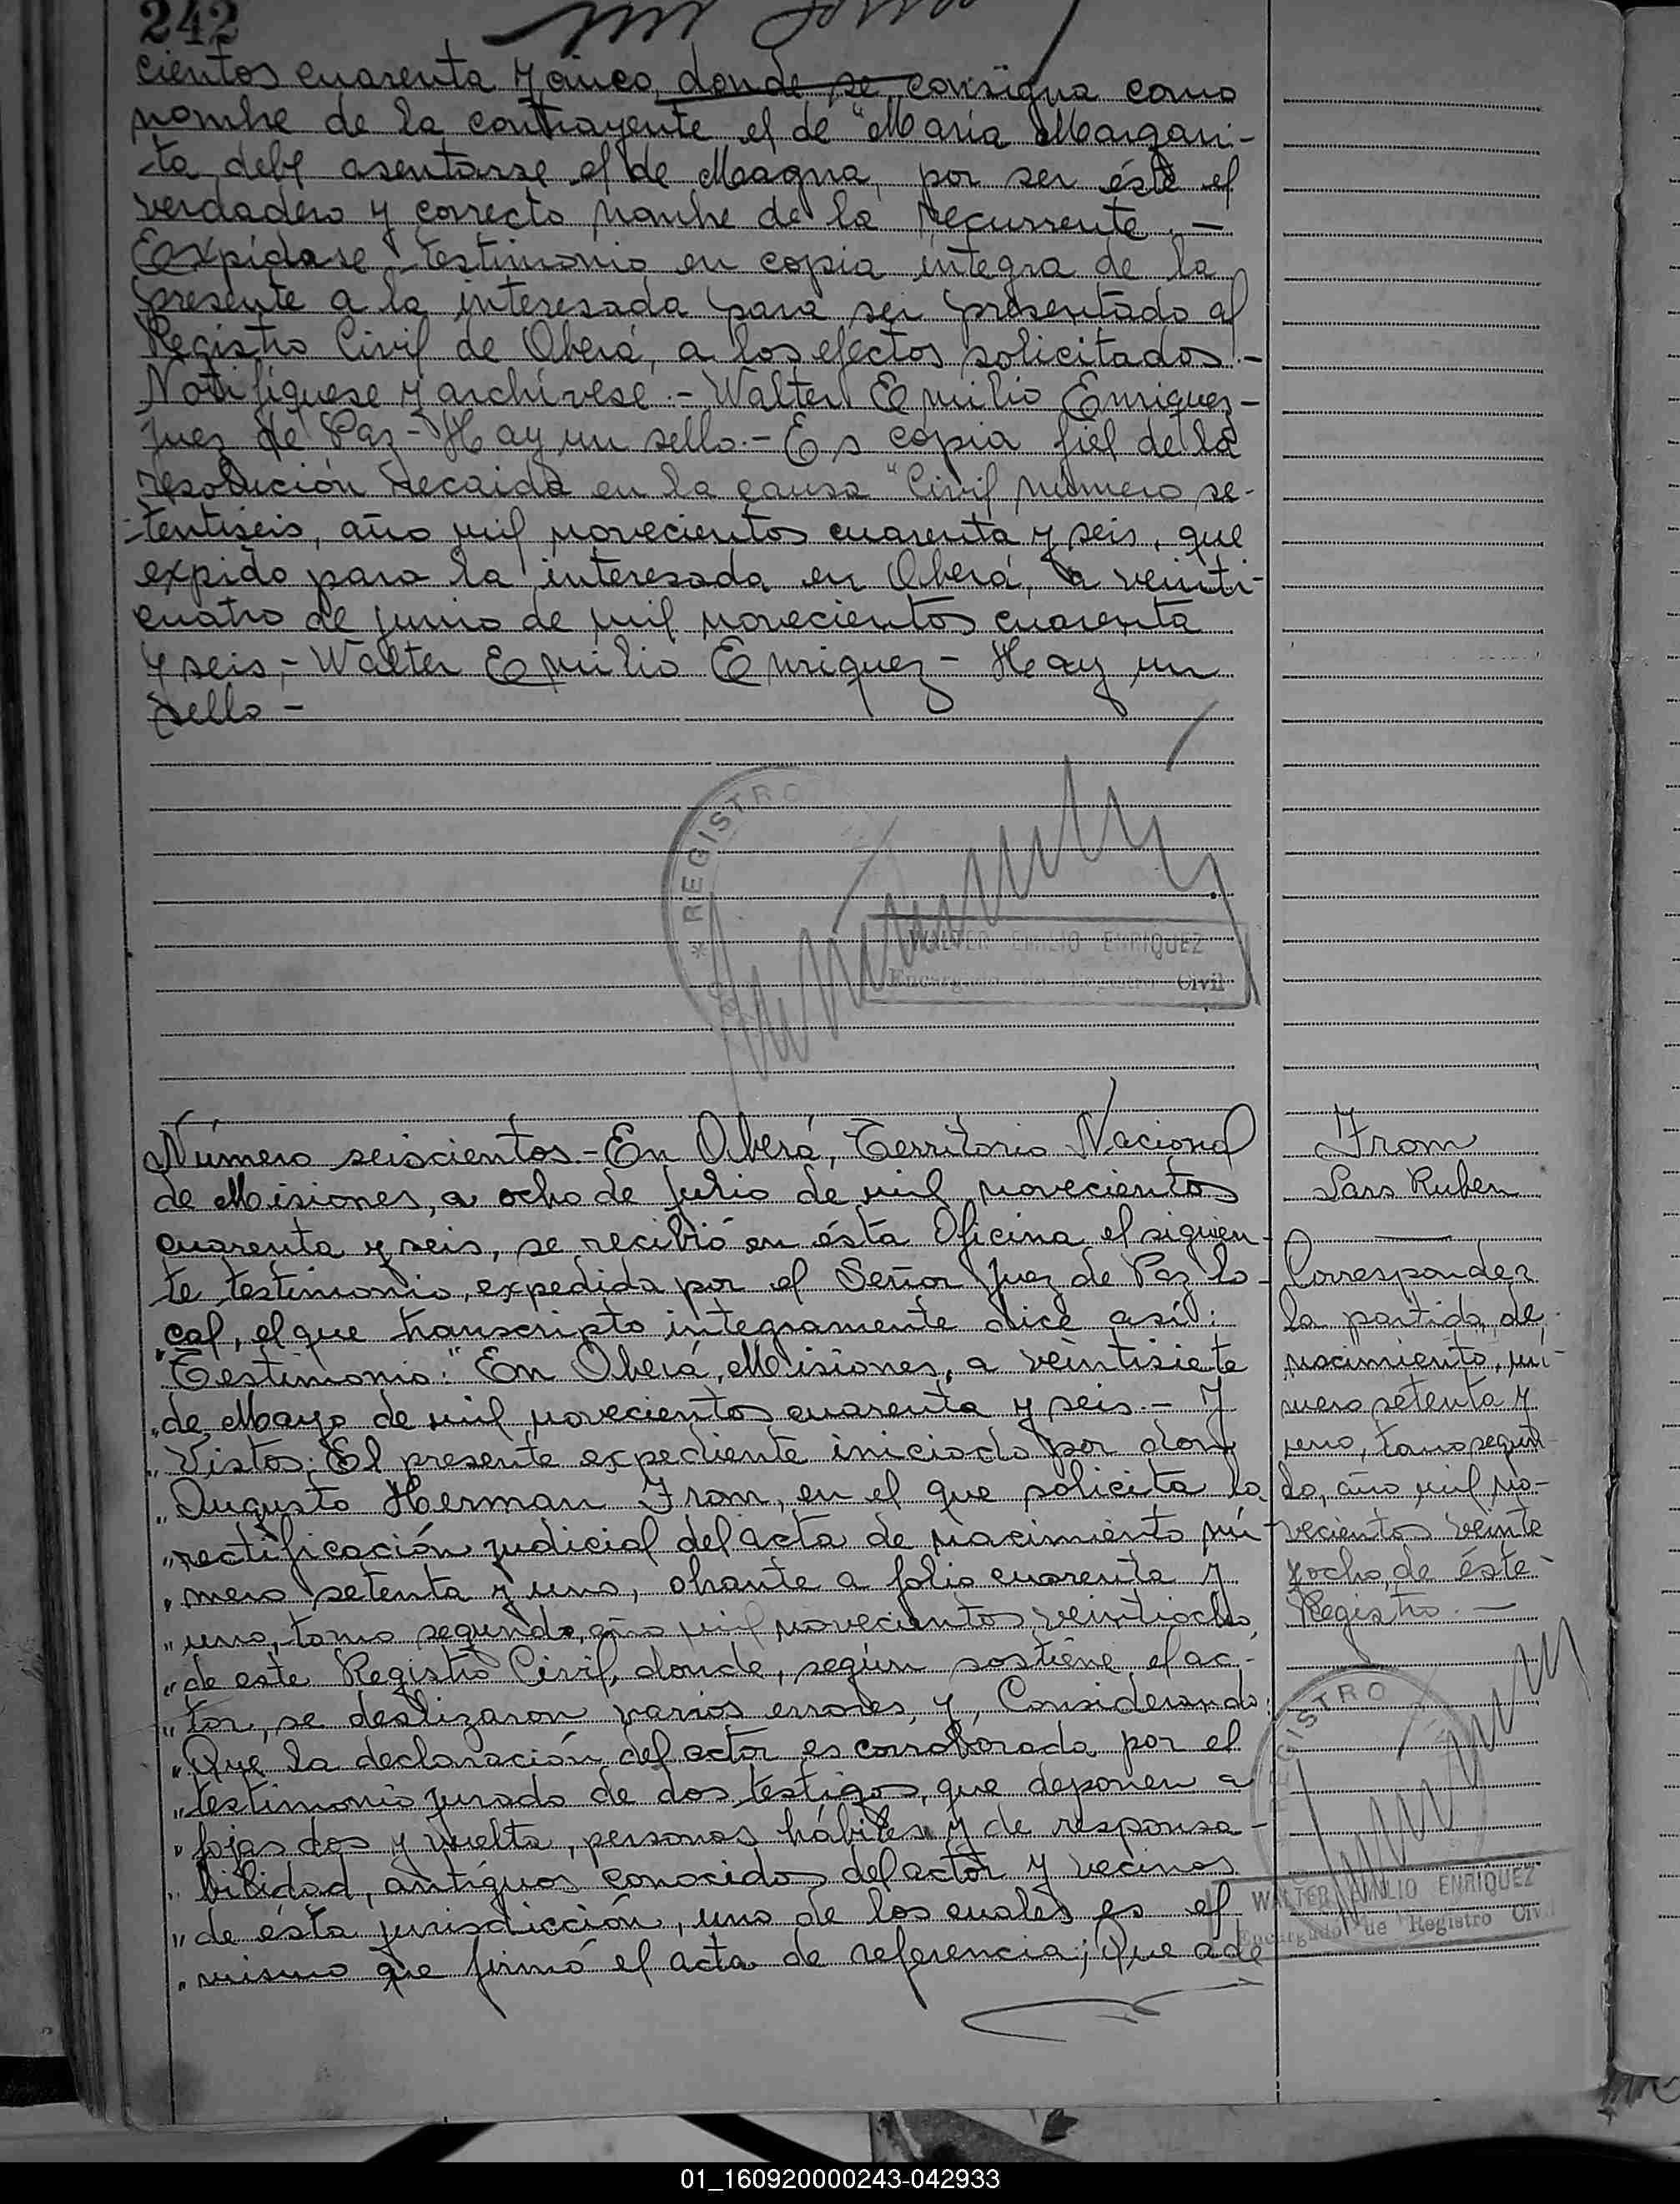 242
cientos cuarenta y cinco, donde se consigna como
nombre de la contrayente el de "María Margari-
-ta debe asentarse el de Magna, por ser éste el
verdadero y correcto nombre de la recurrente.-
Expídase testimonio en copia íntegra de la
presente a la interesada para ser presentado al
Registro Civil de Oberá, a los efectos solicitados.-
Notifíquese y archívese.- Walter Emilio Enriquez-
Juez de Paz- Hay un sello.- Es copia fiel de la
resolución recaida en la causa "Civil número se-
-tentiseis, año mil novecientos cuarenta y seis, que
expido para la interesada en Oberá, a veinti-
cuatro de junio de mil novecientos cuarenta
y seis,- Walter Emilio Enriquez- Hay un
sello-
* REGISTRO
WALTER EMILIO ENRIQUEZ
Encargado de Registro Civil
Número seiscientos.- En Oberá, Territorio Nacional
de Misiones, a ocho de Julio de mil novecientos
cuarenta y seis, se recibió en ésta Oficina el siguien-
te testimonio, expedido por el Señor Juez de Paz lo-
cal, el que transcripto integramente dice así:
"Testimonio:" En Oberá, Misiones, a veintisiete
"de Mayo de mil novecientos cuarenta y seis.- Y
"Vistos: El presente expediente iniciado por don
"Augusto Herman From, en el que solicita la
"rectificación judicial del acta de nacimiento nú-
"mero setenta y uno, obrante a folio cuarenta y
"uno, tomo segundo, año mil novecientos veintiocho,
"de este Registro Civil, donde, según sostiene el ac-
"tor, se deslizaron varios errores, y, Considerando:
"Que la declaración del actor es corroborada por el
"testimonio jurado de dos testigos, que deponen a
"fojas dos y vuelta, personas hábiles y de responsa-
"bilidad, antiguos conocidos del actor y vecinos
"de ésta jurisdicción, uno de los cuales es el
"mismo que firmó el acta de referencia; Que ade
From
Lars Ruben
Corresponde a
la partida de
nacimiento, nú-
mero setenta y
uno, tomo segun-
do, año mil no-
vecientos veinte
y ocho, de éste
Registro.-
REGISTRO
WALTER EMILIO ENRIQUEZ
Encargado de Registro Civil
01_160920000243-042933